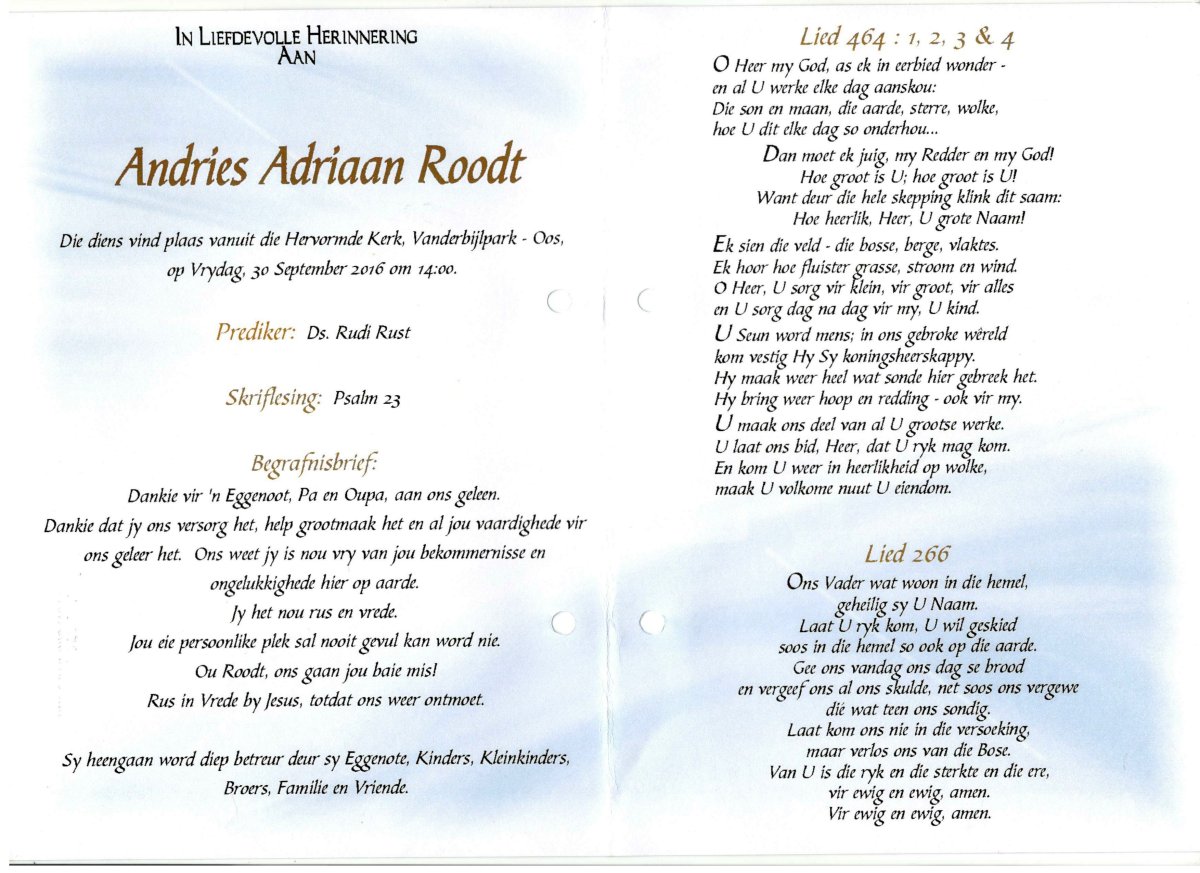 In Liefdevolle Herinnering
Aan
Andries Adriaan Roodt
Die diens vind plaas vanuit die Hervormde Kerk, Vanderbijlpark - Oos,
op Vrydag, 30 September 2016 om 14:00.
Prediker: Ds. Rudi Rust
Skriflesing: Psalm 23
Begrafnisbrief:
Dankie vir 'n Eggenoot, Pa en Oupa, aan ons geleen.
Dankie dat jy ons versorg het, help grootmaak het en al jou vaardighede vir
ons geleer het. Ons weet jy is nou vry van jou bekommernisse en
ongelukkighede hier op aarde.
Jy het nou rus en vrede.
Jou eie persoonlike plek sal nooit gevul kan word nie.
Ou Roodt, ons gaan jou baie mis!
Rus in Vrede by Jesus, totdat ons weer ontmoet.
Sy heengaan word diep betreur deur sy Eggenote, Kinders, Kleinkinders,
Broers, Familie en Vriende.
Lied 464 : 1, 2, 3 & 4
O Heer my God, as ek in eerbied wonder -
en al U werke elke dag aanskou:
Die son en maan, die aarde, sterre, wolke,
hoe U dit elke dag so onderhou...
Dan moet ek juig, my Redder en my God!
Hoe groot is U; hoe groot is U!
Want deur die hele skepping klink dit saam:
Hoe heerlik, Heer, U grote Naam!
Ek sien die veld - die bosse, berge, vlaktes.
Ek hoor hoe fluister grasse, stroom en wind.
O Heer, U sorg vir klein, vir groot, vir alles
en U sorg dag na dag vir my, U kind.
U Seun word mens; in ons gebroke wêreld
kom vestig Hy Sy koningsheerskappy.
Hy maak weer heel wat sonde hier gebreek het.
Hy bring weer hoop en redding - ook vir my.
U maak ons deel van al U grootse werke.
U laat ons bid, Heer, dat U ryk mag kom.
En kom U weer in heerlikheid op wolke,
maak U volkome nuut U eiendom.
Lied 266
Ons Vader wat woon in die hemel,
geheilig sy U Naam.
Laat U ryk kom, U wil geskied
soos in die hemel so ook op die aarde.
Gee ons vandag ons dag se brood
en vergeef ons al ons skulde, net soos ons vergewe
dié wat teen ons sondig.
Laat kom ons nie in die versoeking,
maar verlos ons van die Bose.
Van U is die ryk en die sterkte en die ere,
vir ewig en ewig, amen.
Vir ewig en ewig, amen.